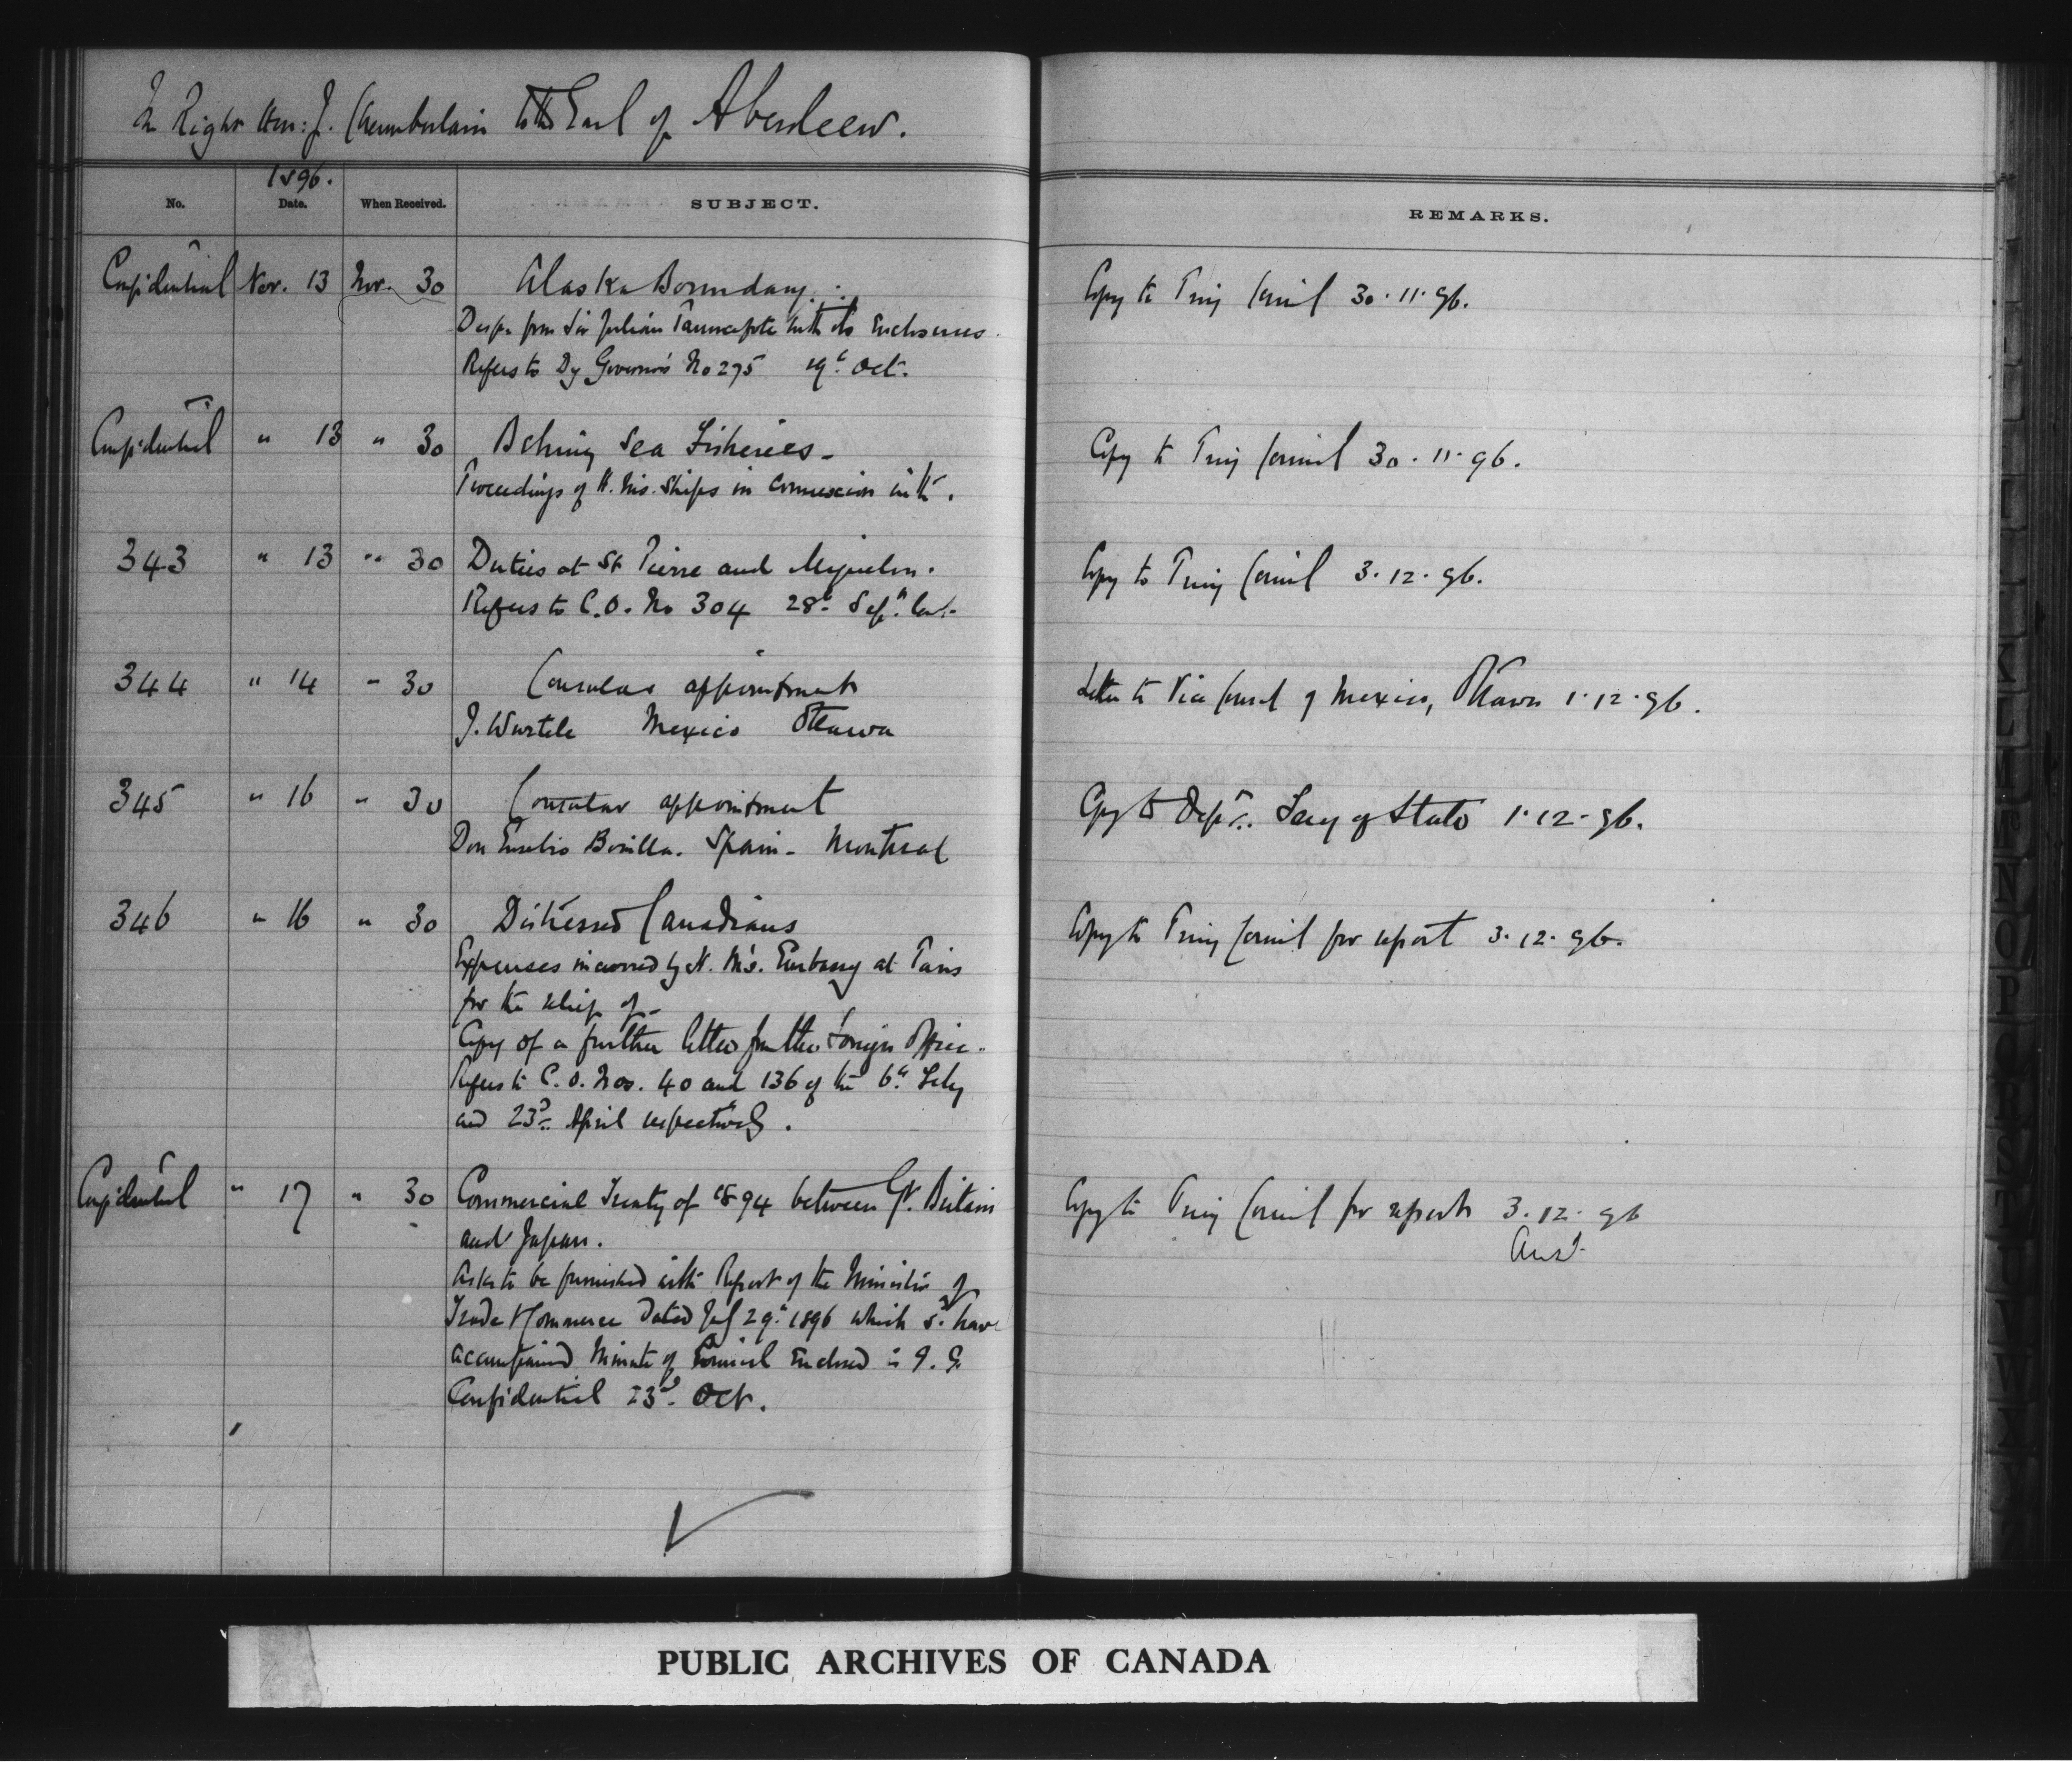 The Right Hon: J. Chamberlain to the Earl of Aberdeen.
1896.
No. Date. When Received. SUBJECT. REMARKS.
Confidential Nov. 13 Nov. 30 Alaska Boundary. Copy to Privy Council 30.11.96.
Despn from Sir Julian Pauncefote with its Enclosures.
Refers to Dy Governor's No 275 19th Oct.
Confidential " 13 " 30 Behring Sea Fisheries - Copy to Privy Council 30.11.96.
Proceedings of H. Ms. Ships in connexion with.
343 " 13 " 30 Duties at St Pierre and Miquelon. Copy to Privy Council 3.12.96.
Refers to C.O. No 304 28th Sepr. last
344 " 14 " 30 Consular appointment Letter to Vice Consul of Mexico, Ottawa 1.12.96.
J. Wurtele Mexico Ottawa
345 " 16 " 30 Consular appointment Copy to Dept. Secy of State 1.12.96.
Don Eusebio Bonilla. Spain - Montreal
346 " 16 " 30 Distressed Canadians Copy to Privy Council for report 3.12.96.
Expenses incurred by H. M's. Embassy at Paris
for the relief of -
Copy of a further letter from the Foreign Office.
Refers to C.O. Nos. 40 and 136 of the 6th Feby
and 23d April respectively.
Confidential " 17 " 30 Commercial Treaty of 1894 between Gt. Britain Copy to Privy Council for report 3.12.96
and Japan. Ansd.
Asks to be furnished with Report of the Minister of
Trade & Commerce dated July 29th 1896 which sd. have
accompanied Minute of Council Enclosed in G.G.
Confidential 23d Oct.
PUBLIC ARCHIVES OF CANADA